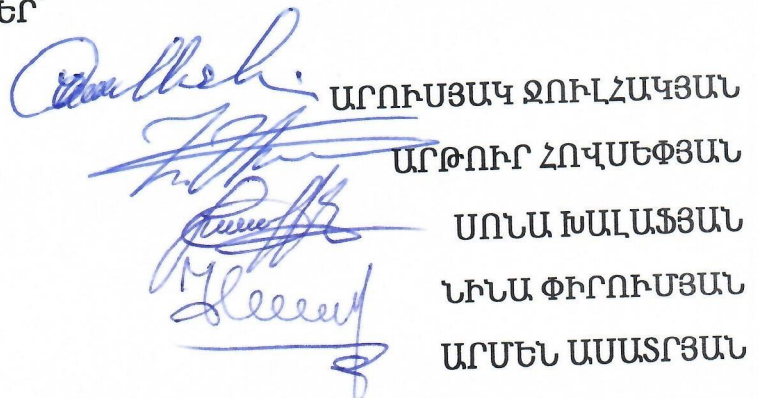 ԵՐ
ԱՐՈՒՍՅԱԿ ՋՈՒԼՀԱԿՅԱՆ
ԱՐԹՈՒՐ ՀՈՎՍԵՓՅԱՆ
ՍՈՆԱ ԽԱԼԱՖՅԱՆ
ՆԻՆԱ ՓԻՐՈՒՄՅԱՆ
ԱՐՄԵՆ ԱՍԱՏՐՅԱՆ